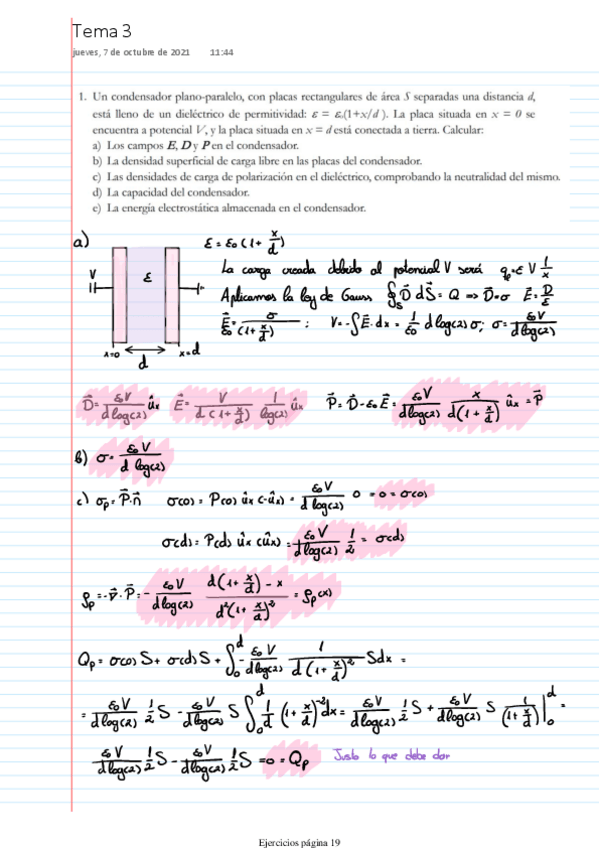 Tema 3
jueves, 7 de octubre de 2021 11:44
1. Un condensador plano-paralelo, con placas rectangulares de área S separadas una distancia d,
está lleno de un dieléctrico de permitividad: ε = ε₀(1+x/d ). La placa situada en x = 0 se
encuentra a potencial V, y la placa situada en x = d está conectada a tierra. Calcular:
a) Los campos E, D y P en el condensador.
b) La densidad superficial de carga libre en las placas del condensador.
c) Las densidades de carga de polarización en el dieléctrico, comprobando la neutralidad del mismo.
d) La capacidad del condensador.
e) La energía electrostática almacenada en el condensador.
a) ε = ε₀ (1+ x/d)
La carga creada debido al potencial V será q=ε V 1/x
V ε Aplicamos la ley de Gauss ∮s D⃗ dS⃗ = Q => D⃗=σ E⃗= D/ε
E⃗= σ/(1+ x/d) ; V=-∫E⃗·dx = 1/ε₀ d log(2) σ; σ= ε₀V/dlog(2)
x=0 d x=d
D⃗= ε₀V/dlog(2) ûx E⃗= V/d(1+ x/d) 1/log(2) ûx P⃗=D⃗-ε₀E⃗= ε₀V/dlog(2) x/d(1+ x/d) ûx =P⃗
b) σ= ε₀V/d log(2)
c) σp=P⃗·n̂ σ(0)= P(0) ûx (-ûx) = ε₀V/d log(2) 0 =0=σ(0)
σ(d)= P(d) ûx (ûx) = ε₀V/dlog(2) 1/2 = σ(d)
ρp=-∇⃗·P⃗=- ε₀V/dlog(2) d(1+ x/d)-x/d²(1+ x/d)² = ρp(x)
Qp= σ(0) S+ σ(d) S + ∫₀ᵈ - ε₀V/dlog(2) 1/d(1+ x/d)² Sdx =
= ε₀V/dlog(2) 1/2 S - ε₀V/dlog(2) S ∫₀ᵈ 1/d (1+ x/d)⁻² dx = ε₀V/dlog(2) 1/2 S + ε₀V/dlog(2) S 1/(1+ x/d) |₀ᵈ =
ε₀V/dlog(2) 1/2 S - ε₀V/dlog(2) 1/2 S =0= Qp Justo lo que debe dar
Ejercicios página 19